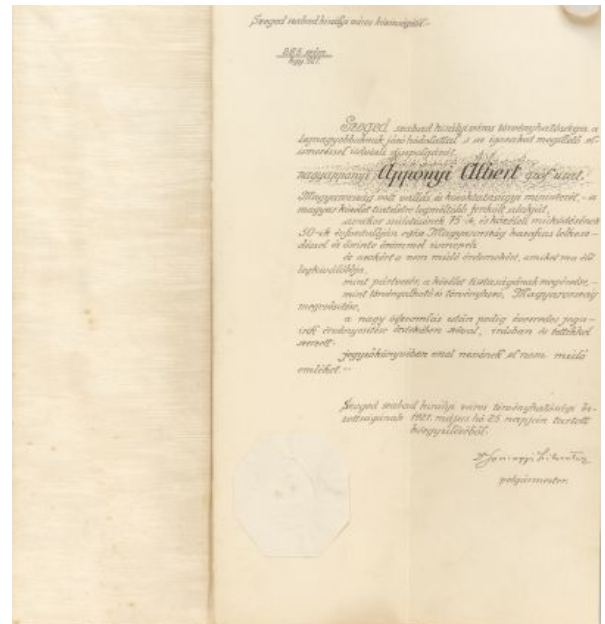 Szeged szabad királyi város közönségétől.
Szeged szabad királyi város törvényhatósága a
legnagyobbaknak járó hódolattal s az igazakat megillető el-
ismeréssel üdvözli díszpolgárát
nagyapponyi Apponyi Albert gróf urat,
Magyarország volt vallás és közoktatásügyi miniszterét, - a
magyar közélet tiszteletre legméltóbb férfiát,
amikor születésének 75-ik, és közéleti működésének
50-ik évfordulóján egész Magyarország hazafias lelkese-
déssel és őszinte örömmel ünnepeli
és azokért a nem múló érdemekért, amiket ma élő
legkiválóbbja,
mint pártvezér, a közélet tisztaságának megőrzése, -
mint törvényalkotó és törvénytisztelő, Magyarország
megerősítése,
a nagy összeomlás után pedig ezeréves joga-
ink érvényesítése érdekében szóval, írásban és tettekkel
szerzett
jegyzőkönyvében emel nevének el nem múló
emléket. -
Szeged szabad királyi város törvényhatósági bi-
zottságának 1921. május hó 25. napján tartott
közgyűléséből.
polgármester.